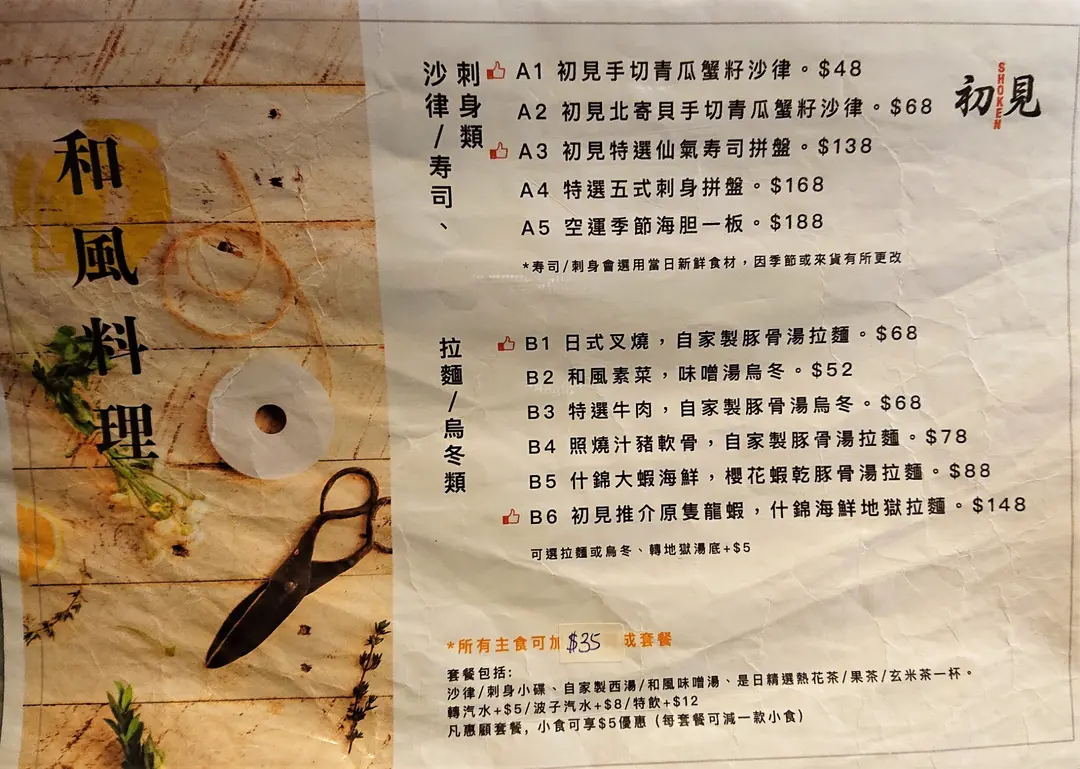 和風料理
初見
SHOKEN
刺身類
沙律/寿司、
A1 初見手切青瓜蟹籽沙律。$48
A2 初見北寄貝手切青瓜蟹籽沙律。$68
A3 初見特選仙氣寿司拼盤。$138
A4 特選五式刺身拼盤。$168
A5 空運季節海胆一板。$188
*寿司/刺身會選用當日新鮮食材，因季節或來貨有所更改
拉麵/烏冬類
B1 日式叉燒，自家製豚骨湯拉麵。$68
B2 和風素菜，味噌湯烏冬。$52
B3 特選牛肉，自家製豚骨湯烏冬。$68
B4 照燒汁豬軟骨，自家製豚骨湯拉麵。$78
B5 什錦大蝦海鮮，櫻花蝦乾豚骨湯拉麵。$88
B6 初見推介原隻龍蝦，什錦海鮮地獄拉麵。$148
可選拉麵或烏冬、轉地獄湯底+$5
*所有主食可加 $35 成套餐
套餐包括:
沙律/刺身小碟、自家製西湯/和風味噌湯、是日精選熱花茶/果茶/玄米茶一杯。
轉汽水+$5/波子汽水+$8/特飲+$12
凡惠顧套餐, 小食可享$5優惠（每套餐可減一款小食）